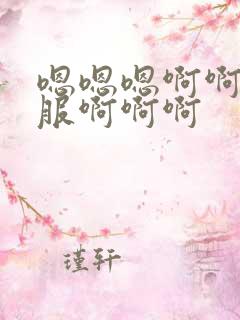 嗯嗯嗯啊啊
服啊啊啊
瑾轩